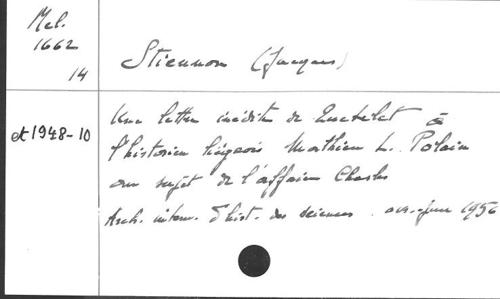 Mel.
1662
14
Stiennon (Jacques)
et 1948-10
Une lettre inédite de Quetelet à
l'historien liégeois Mathieu L. Polain
au sujet de l'affaire Chasles
Arch. intern. d'hist. des sciences. avr.-juin 1956